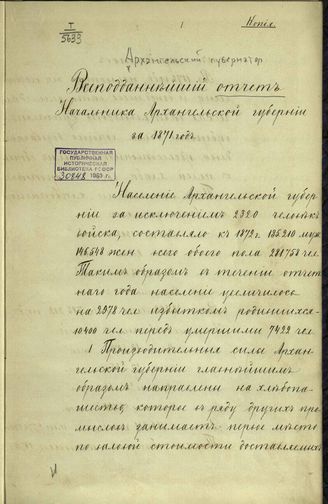 I
5633
1
Копія.
Архангельский губернатор
Всеподданнѣйшій отчетъ
Начальника Архангельской губерніи
за 1871 годъ
ГОСУДАРСТВЕННАЯ
ПУБЛИЧНАЯ
ИСТОРИЧЕСКАЯ
БИБЛИОТЕКА РСФСР
30848 1963 г.
Населеніе Архангельской губер
ніи за исключеніемъ 2320 человѣкъ
войска, составляло къ 1872 г. 135210 муж
146548 жен всего обоего пола 281758 чел
Такимъ образомъ въ теченіи отчет
наго года населеніе увеличилось
на 2978 чел избыткомъ родившихся
10400 чел передъ умершими 7422 чел
1 Производительныя силы Архан
гельской губерніи главнѣйшимъ
образомъ направлены на хлѣбопа
шество, которое въ ряду другихъ про
мысловъ занимаетъ первое мѣсто
по цѣнной стоимости доставляемыхъ